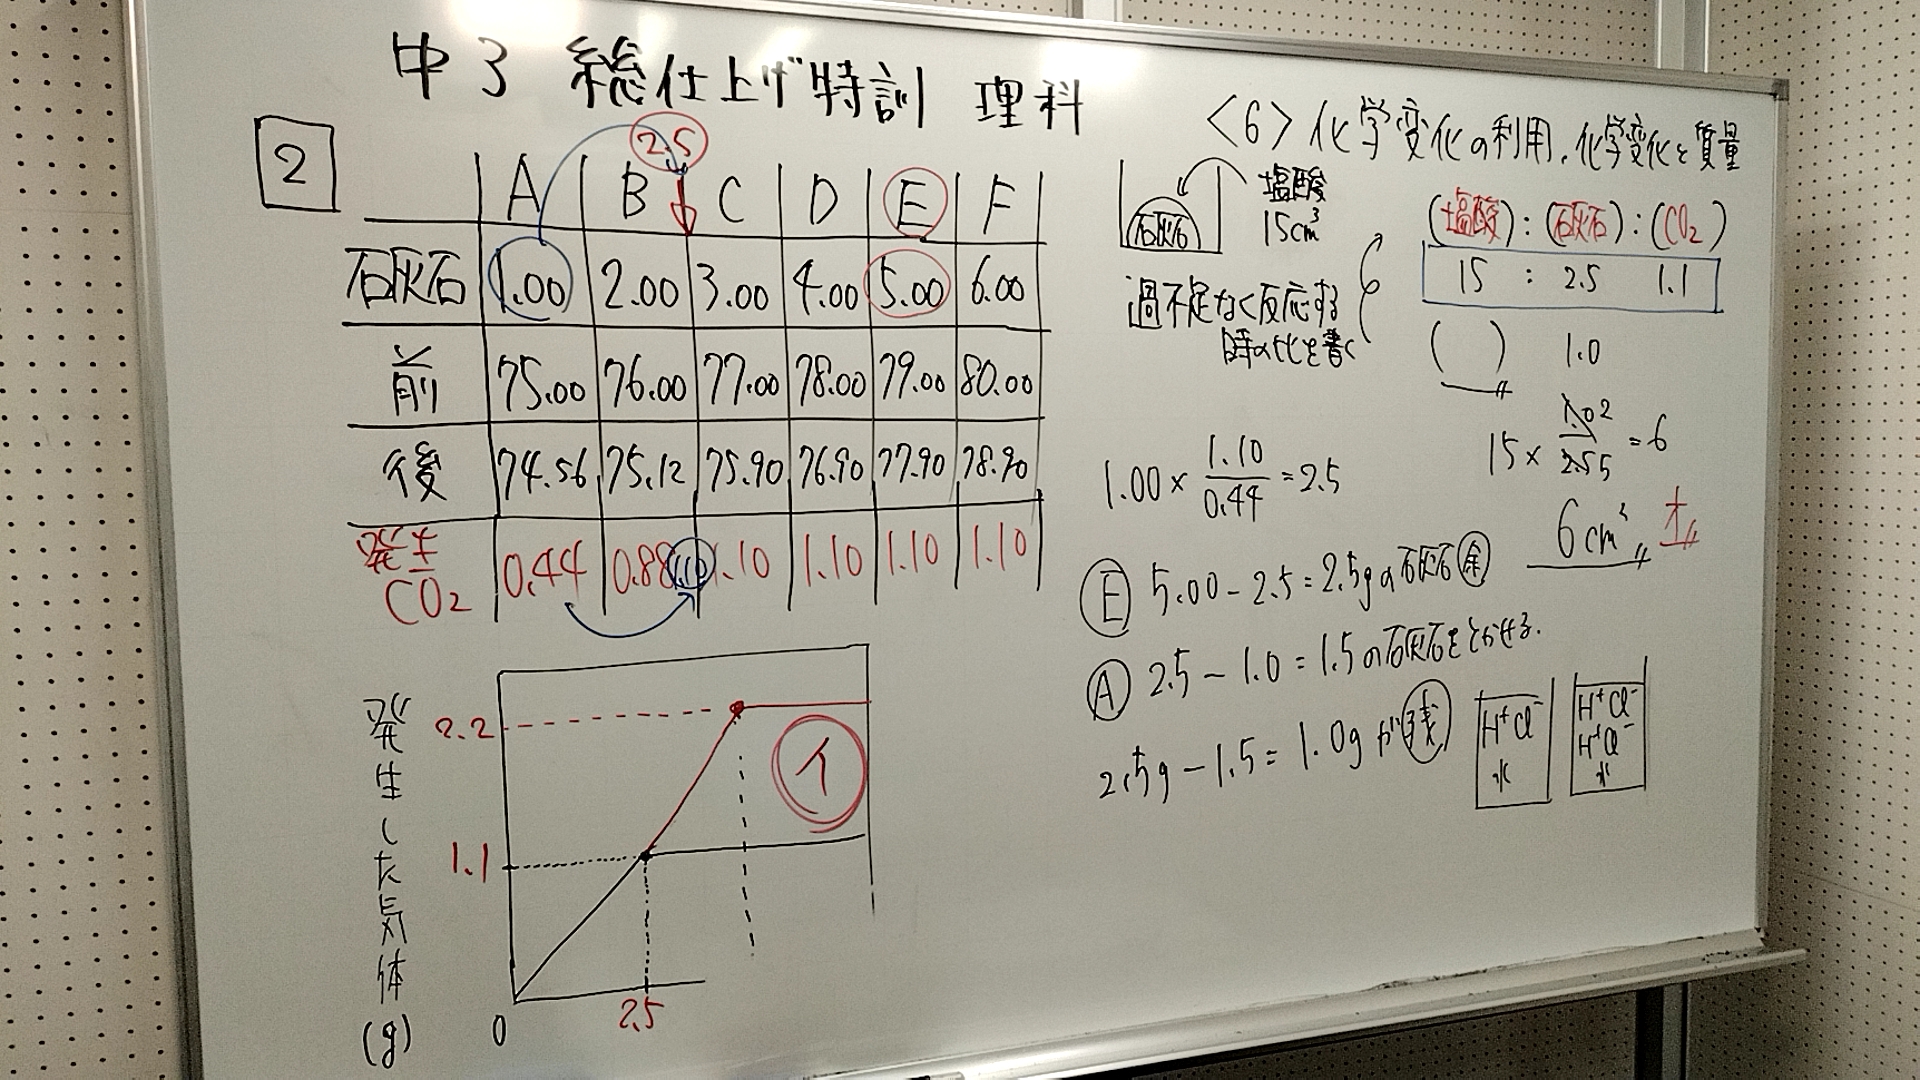 中3 総仕上げ特訓 理科
<6>化学変化の利用,化学変化と質量
2
2.5
A B C D E F
石灰石 1.00 2.00 3.00 4.00 5.00 6.00
前 75.00 76.00 77.00 78.00 79.00 80.00
後 74.56 75.12 75.90 76.90 77.90 78.90
発生CO2 0.44 0.88 1.10 1.10 1.10 1.10 1.10
発生した気体(g)
2.2
1.1
0
2.5
イ
石灰石
塩酸
15cm³
過不足なく反応する
時の比を書く
(塩酸):(石灰石):(CO2)
15 : 2.5 1.1
( ) 1.0
1.00 × 1.10/0.44 = 2.5
15 × 1.0 2/2.5 5 = 6
6cm³
E 5.00 - 2.5 = 2.5gの石灰石余
A 2.5 - 1.0 = 1.5の石灰石をとかせる.
2.5g - 1.5 = 1.0gが残
H⁺Cl⁻
水
H⁺Cl⁻
H⁺Cl⁻
水